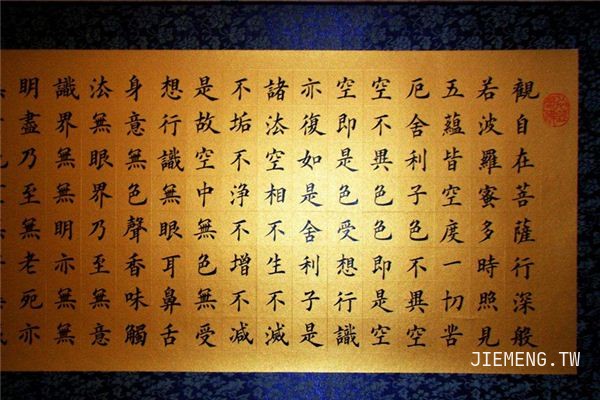 觀自在菩薩行深般
若波羅蜜多時照見
五蘊皆空度一切苦
厄舍利子色不異空
空不異色色即是空
空即是色受想行識
亦復如是舍利子是
諸法空相不生不滅
不垢不净不增不减
是故空中無色無受
想行識無眼耳鼻舌
身意無色聲香味觸
法無眼界乃至無意
識界無無明亦無無
明盡乃至無老死亦
JIEMENG.TW